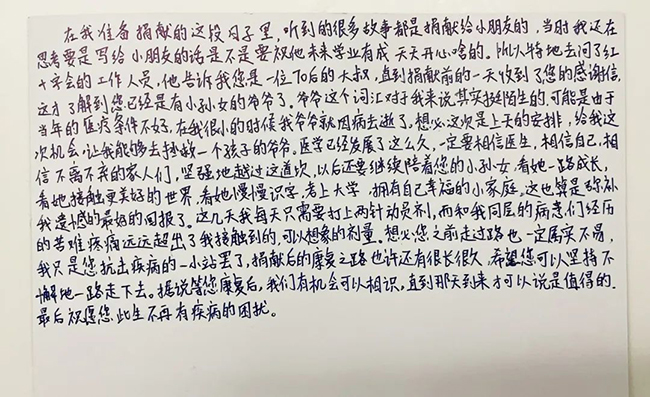 在我准备捐献的这段日子里，听到的很多故事都是捐献给小朋友的，当时我还在
思考要是写给小朋友的话是不是要祝他未来学业有成 天天开心啥的。所以特地去问了红
十字会的工作人员，他告诉我您是一位70后的大叔，直到捐献前的一天收到了您的感谢信，
这才了解到您已经是有小孙女的爷爷了。爷爷这个词汇对于我来说其实挺陌生的，可能是由于
当年的医疗条件不好，在我很小的时候我爷爷就因病去逝了。想必这次是上天的安排，给我这
次机会，让我能够去拯救一个孩子的爷爷。医学已经发展了这么久，一定要相信医生，相信自己，相
信不离不弃的家人们，坚强地越过这道坎，以后还要继续陪着您的小孙女，看她一路成长，
看她接触更美好的世界，看她慢慢识字，考上大学，拥有自己幸福的小家庭，这也算是弥补
我遗憾的最好的回报了。这几天我每天只需要打上两针动员剂，而和我同层的病患们经历
的苦难疼痛远远超出了我接触到的，可以想象的剂量。想必您之前走过路也一定属实不易，
我只是您抗击疾病的一小站罢了，捐献后的康复之路也许还有很长很久，希望您可以坚持不
懈地一路走下去。据说等您康复后，我们有机会可以相识，直到那天到来才可以说是值得的。
最后祝愿您此生不再有疾病的困扰。